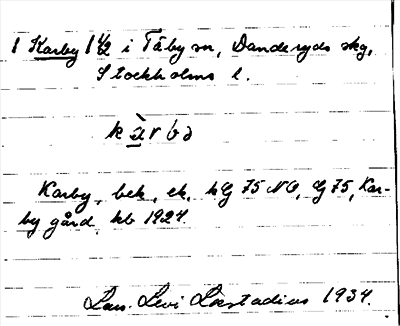 1 Karby 1 1/2 i Täby sn, Danderyds skg,
Stockholms l.
kàrbə
Karby, bek, ek, hG 75 NO, G 75, Kar-
by gård kb 1927.
Lars Levi Læstadius 1934.